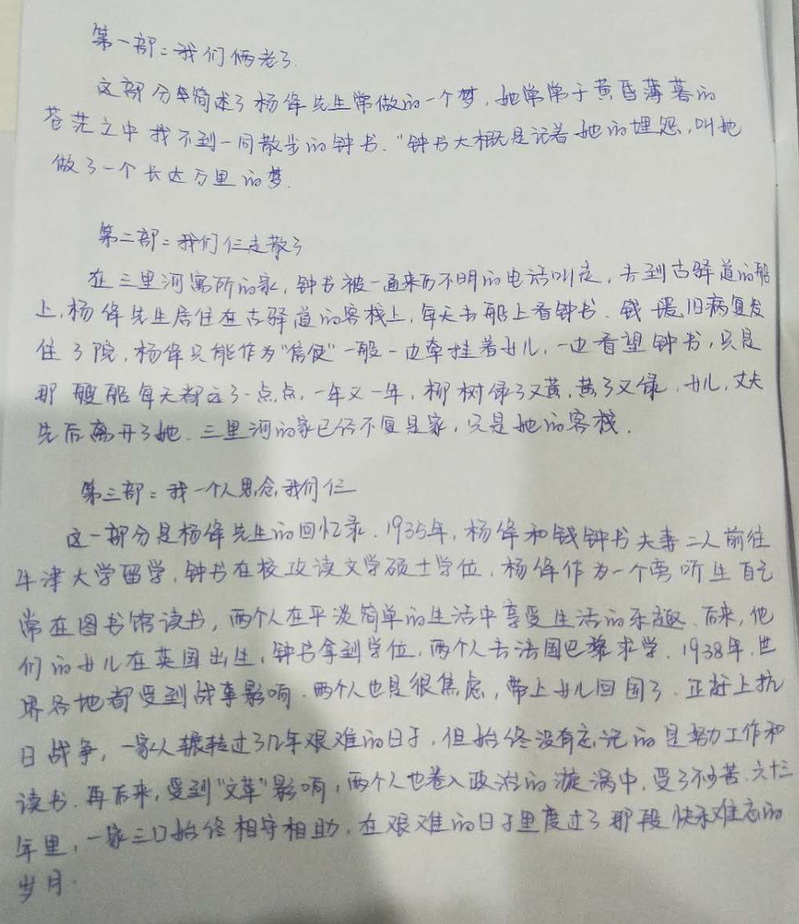 第一部：我们俩老了.
这部分简述了杨绛先生常做的一个梦，她常常于黄昏薄暮的
苍茫之中找不到一同散步的钟书."钟书大概是记着她的埋怨，叫她
做了一个长达万里的梦.
第二部：我们仨走散了
在三里河寓所的家，钟书被一通来历不明的电话叫走，去到古驿道的船
上.杨绛先生居住在古驿道的客栈上，每天去船上看钟书.钱瑗旧病复发
住了院，杨绛只能作为"信使"一般一边牵挂着女儿，一边看望钟书，只是
那艘船每天都远了一点点，一年又一年，柳树绿了又黄，黄了又绿，女儿，丈夫
先后离开了她.三里河的家已经不复是家，只是她的客栈.
第三部：我一个人思念我们仨
这一部分是杨绛先生的回忆录.1935年，杨绛和钱钟书夫妻二人前往
牛津大学留学，钟书在校攻读文学硕士学位，杨绛作为一个旁听生自己
常在图书馆读书，两个人在平淡简单的生活中享受生活的乐趣.后来，他
们的女儿在英国出生，钟书拿到学位，两个人去法国巴黎求学.1938年，世
界各地都受到战事影响.两个人也是很焦虑，带上女儿回国了.正赶上抗
日战争，一家人辗转过了几年艰难的日子，但始终没有忘记的是努力工作和
读书.再后来，受到"文革"影响，两个人也卷入政治的漩涡中，受了不少苦.六十三
年里，一家三口始终相守相助，在艰难的日子里度过了那段快乐难忘的
岁月.